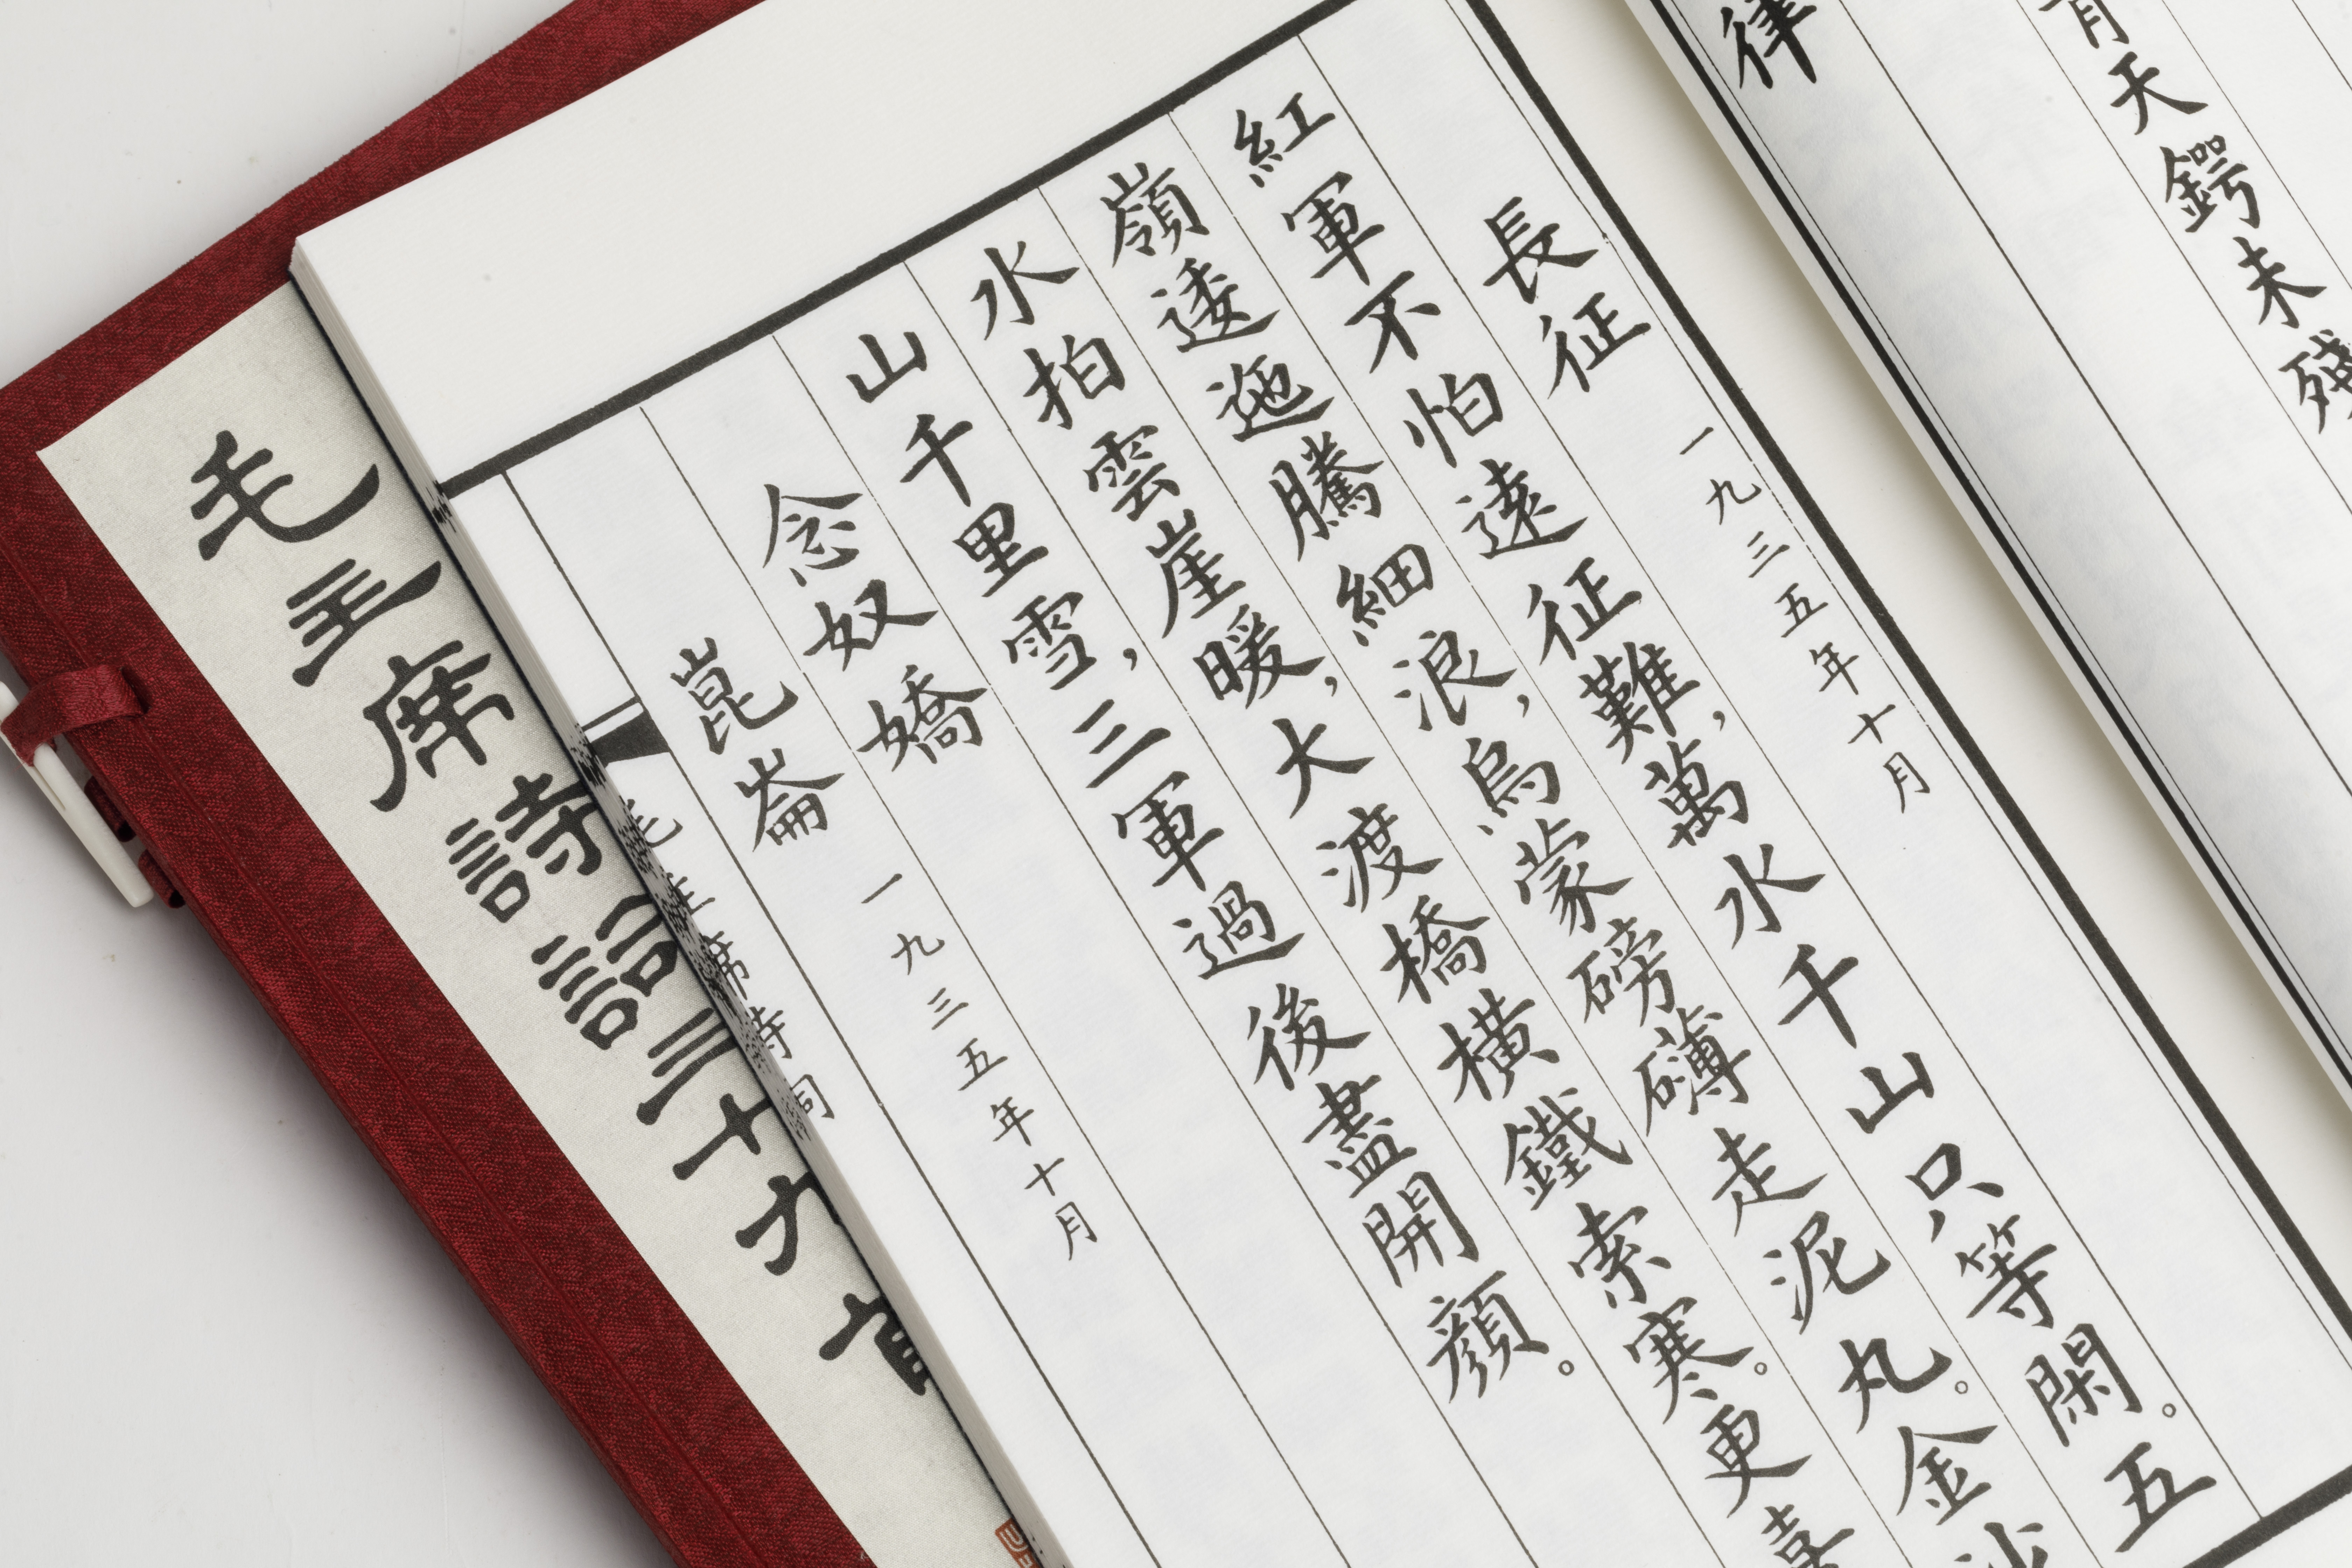 青天鍔未殘
律
長征 一九三五年十月
紅軍不怕遠征難，萬水千山只等閑。五
嶺逶迤騰細浪，烏蒙磅礴走泥丸。金沙
水拍雲崖暖，大渡橋橫鐵索寒。更喜
山千里雪，三軍過後盡開顏。
念奴嬌
崑崙 一九三五年十月
毛主席詩詞
毛主席詩詞三十九首